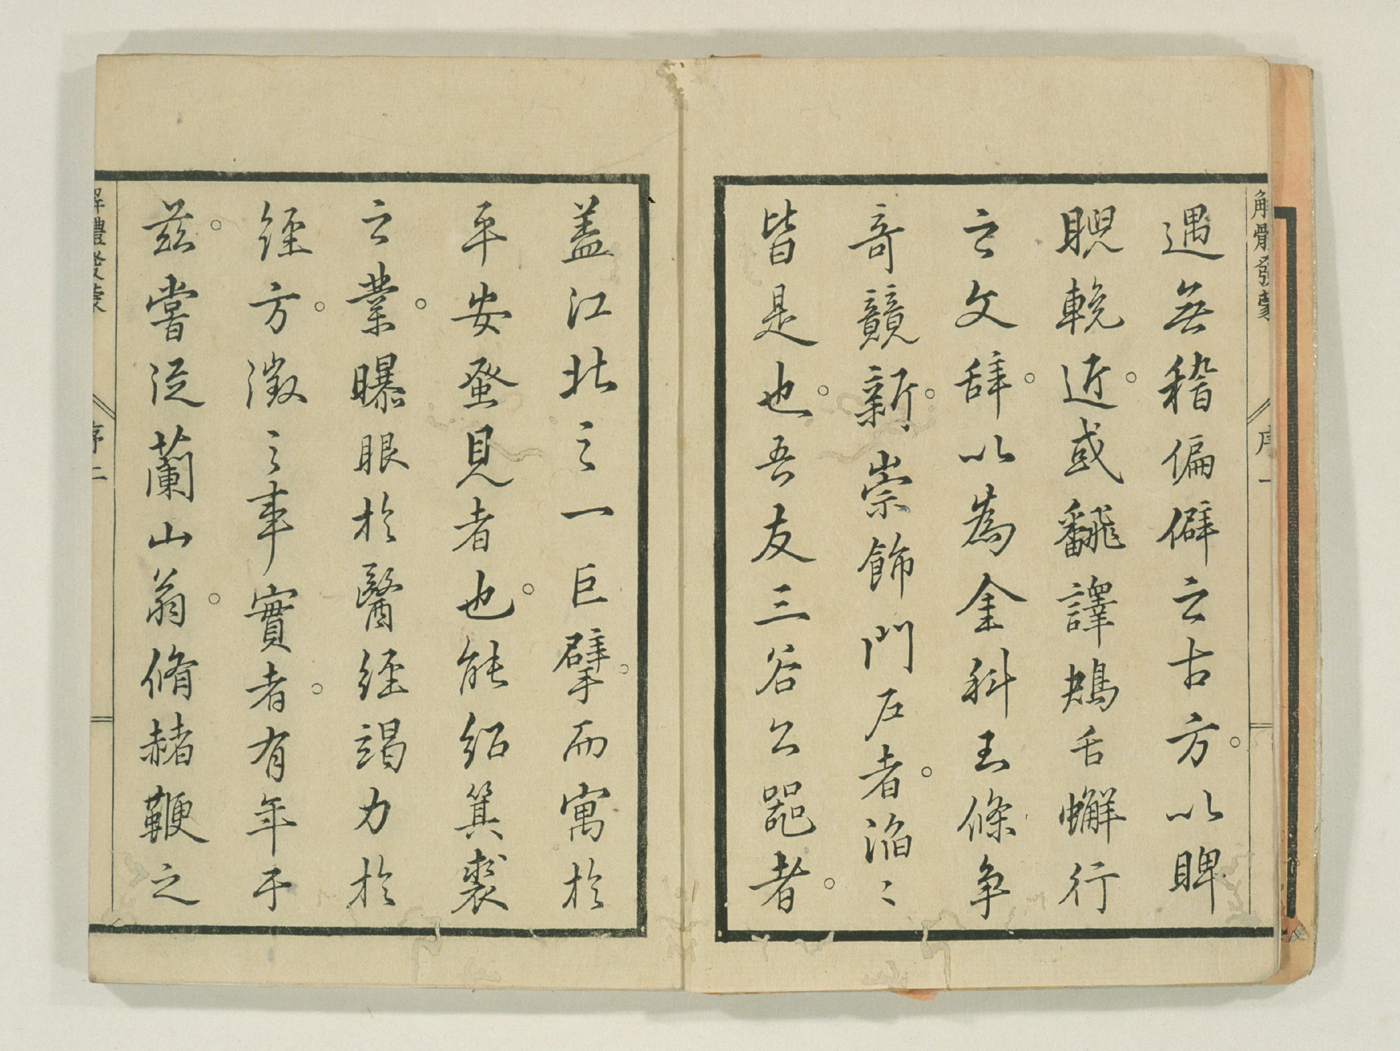 解體發蒙 序 一
遇無稽偏僻之古方。以睥
睨輓近。或飜譯鴃舌蠏行
之文辞。以為金科玉條争
奇競新。崇飾門戸者。滔〻
皆是也。吾友三谷公器者。
盖江北之一巨擘。而寓於
平安蚤見者也。能紹箕裘
之業。曝眼於醫經竭力於
經方。徴之事實者。有年于
茲。嘗従蘭山翁。脩赭鞭之
解體發蒙 序 二